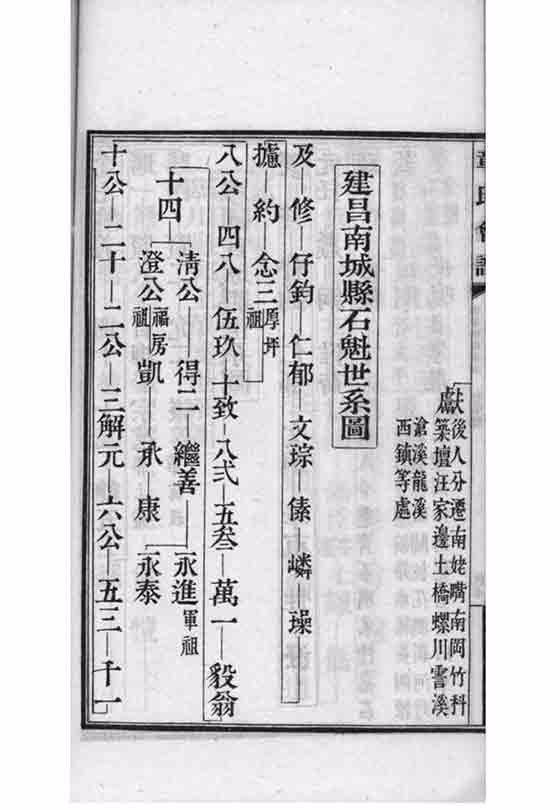 章氏會譜
獻後人分遷南姥嘴南岡竹科
築壇汪家邊土橋螺川霅溪
滄溪龍溪
西鎮等處
建昌南城縣石魁世系圖
及 修 仔鈞 仁郁 文琮 傃 嶙 璪
攄 約 念三 厚坪祖
八公 四八 伍玖 十致 八弍 五叁 萬一 毅翁
十四 清公 得二 繼善 永進 軍祖
澄公 福房祖 凱 承 康 永泰
十公 二十 二公 三解元 六公 五三 千一